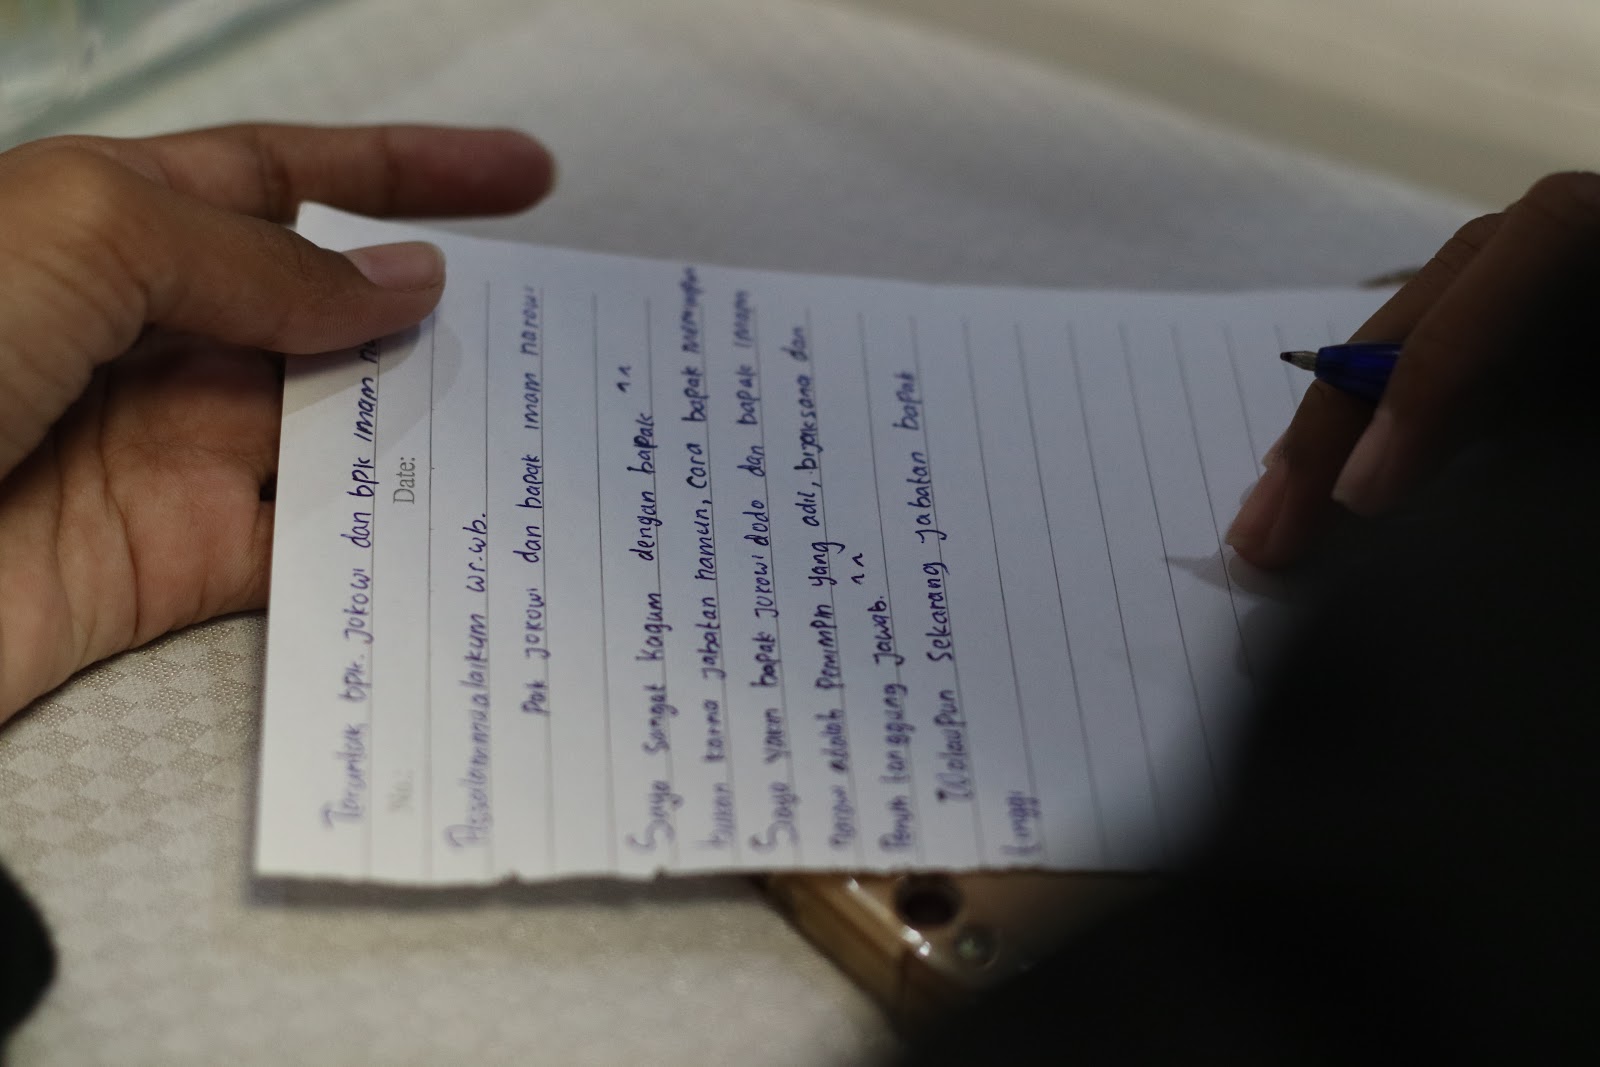 Teruntuk bpk. jokowi dan bpk imam na
No.: Date:
Assalammualaikum wr.wb.
Pak jokowi dan bapak imam narowi
Saya sangat kagum dengan bapak ^^
bukan karna jabatan namun, cara bapak memimpin
Saya yakin bapak jokowi dodo dan bapak imam
narowi adalah pemimpin yang adil, bijaksana dan
Penuh tanggung jawab. ^^
Walaupun sekarang jabatan bapak
tinggi